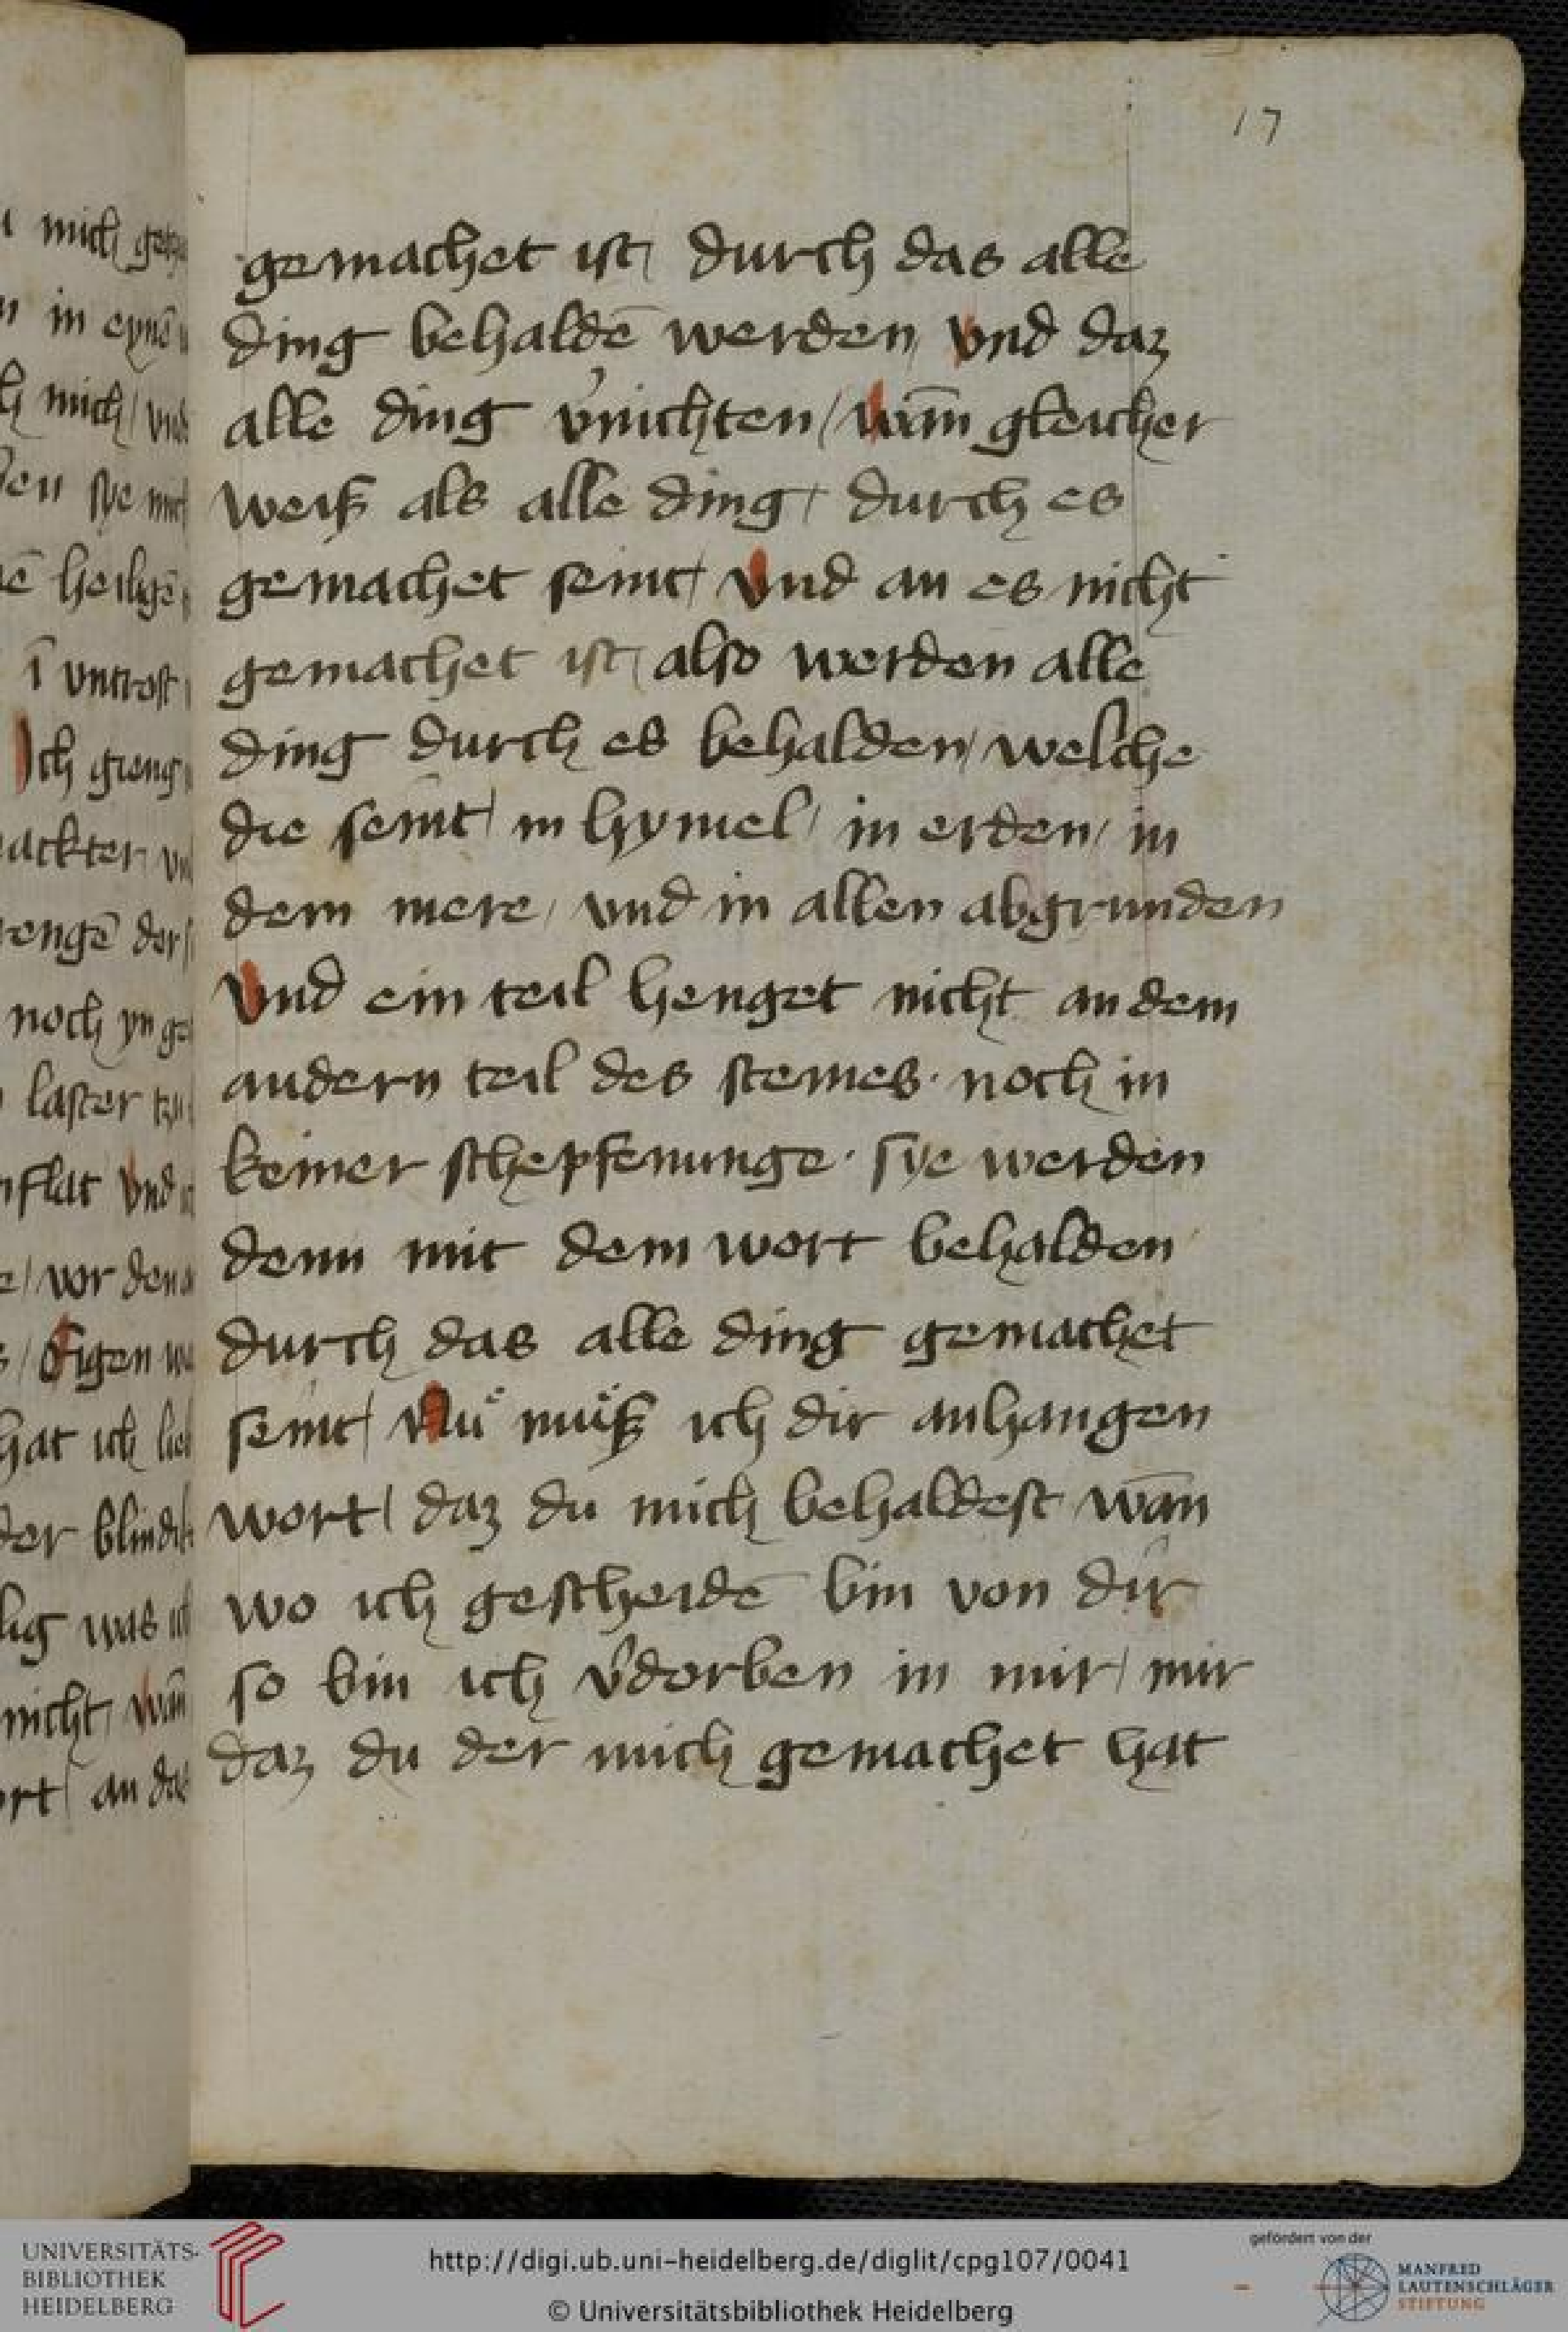 17
gemachet ist/ durch das alle
ding behaldē werden/ vnd daz
alle ding v̉nichten/ wām gleicher
weiß als alle ding/ durch es
gemachet seint/ vnd an es nicht
gemachet ist/ also werden alle
ding durch es behalden/ welche
die seint/ in hymel/ in erden/ in
dem mere/ vnd in allen abgrunden
vnd ein teil henget nicht an dem
andern teil des steines · noch in
keiner schepfenunge · sye werden
denn mit dem wort behalden
durch das alle ding gemachet
seint/ Nuͦ muͦß ich dir anhangen
wort/ daz du mich behaldest wān
wo ich gescheidē bin von dir
so bin ich v̉dorben in mir/ mir
daz du der mich gemachet hat
mich
in eynē
mich/ vnd
sye mich
heiligē
ī vntrost
Ich gieng
noch yn
laster
vnd
vor den
hat ich lieb
der
was ich
nicht/ wān
an das
UNIVERSITÄTS-
BIBLIOTHEK
HEIDELBERG
http://digi.ub.uni-heidelberg.de/diglit/cpg107/0041
© Universitätsbibliothek Heidelberg
gefördert von der
MANFRED
LAUTENSCHLÄGER
STIFTUNG